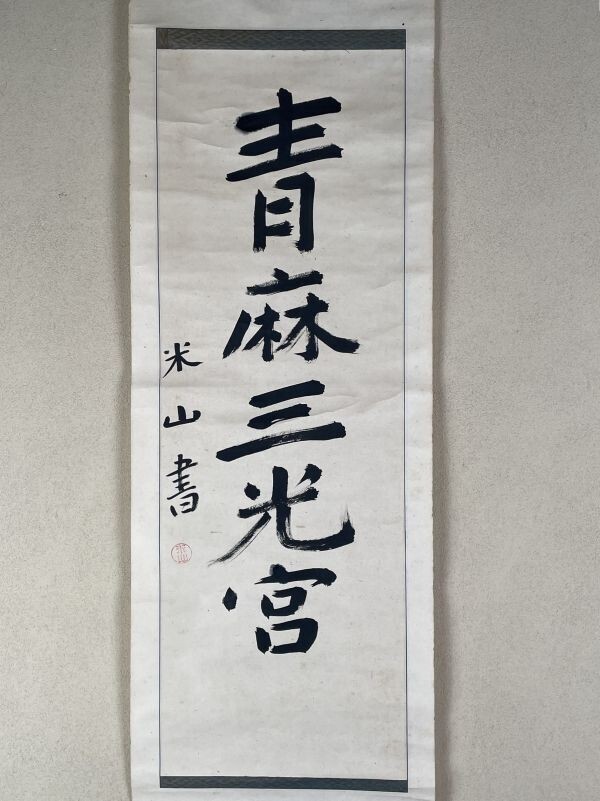 青麻三光宮
米山書